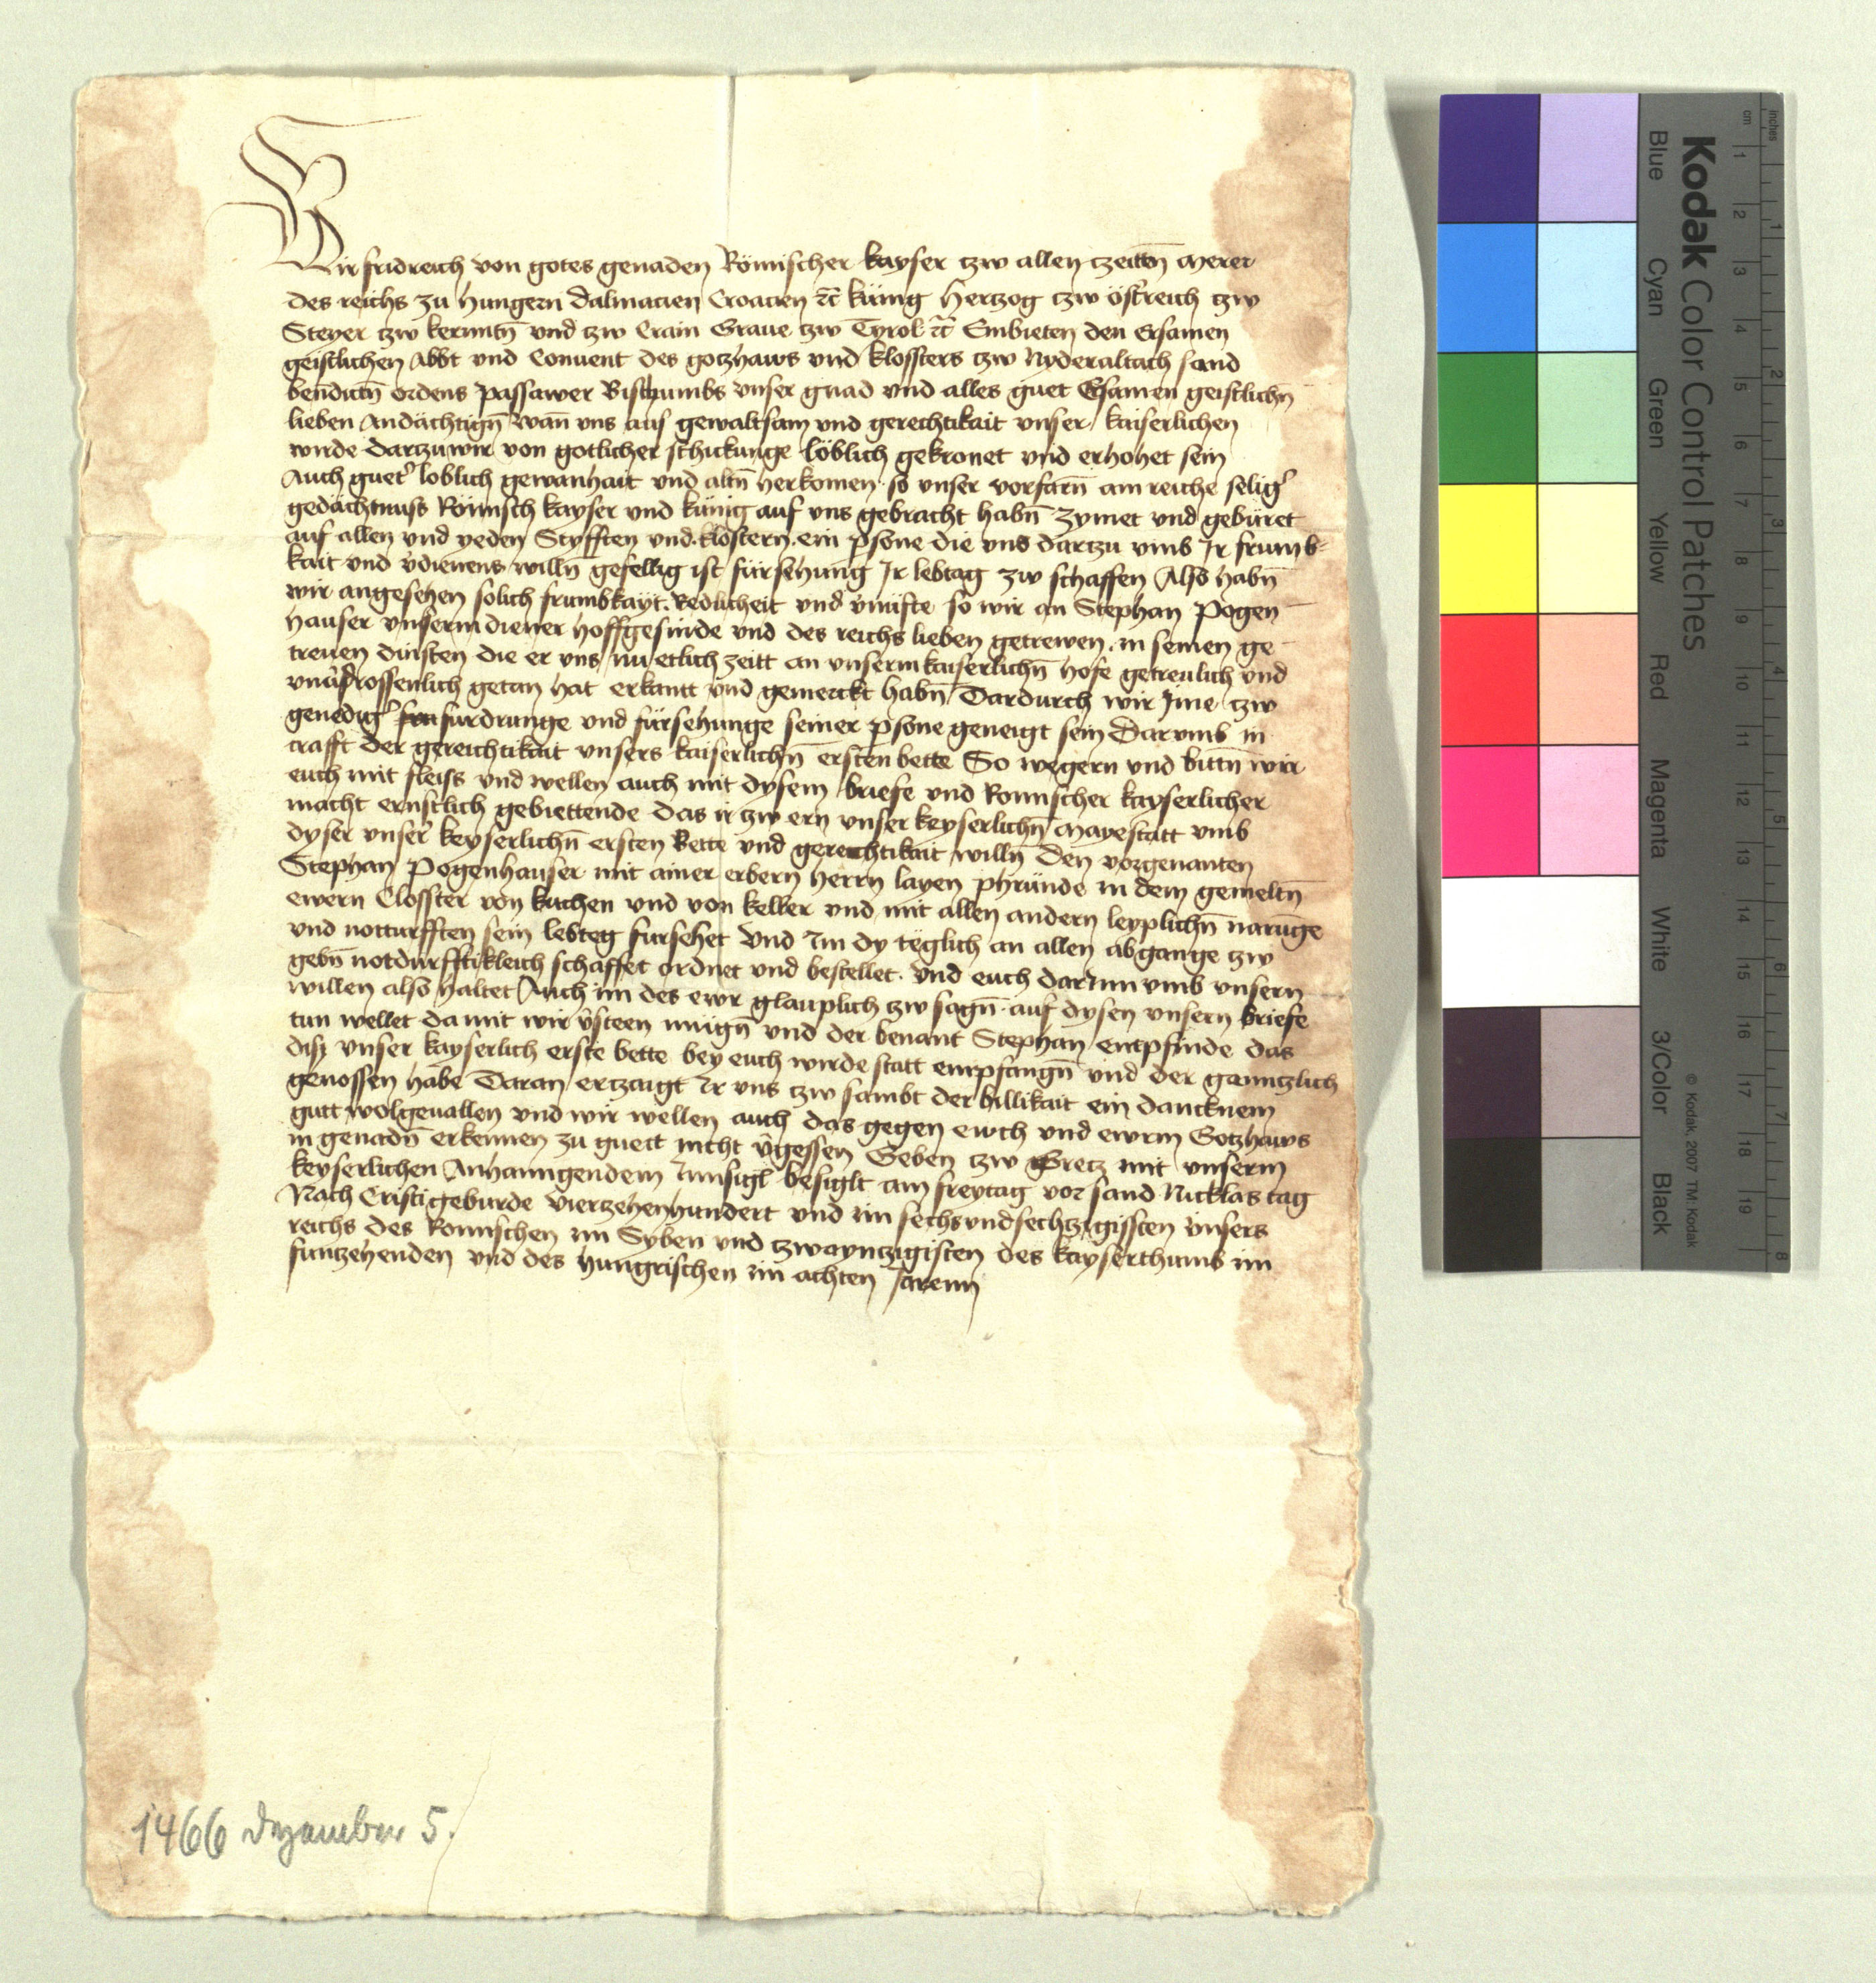 Wir fridreich von gotes genaden Römischer kayser tzw allen tzeitñ merer
des reichs zu hungern dalmacien Croacien ꝛc̃ künig hertzog tzw östreich tzw
Steyer tzw kernntñ vnd tzw Crain Graue tzw Tyrol ꝛc̃ Embieten den Ersamen
geistlichen Abbt vnd Conuent des gotzhaws vnd klossters tzw Nyderaltach sand
bendictñ ordens Passawer Bistumbs vnser gnad vnd alles guet Ersamen geistlichñ
lieben Andächtigñ Wañ vns aus gewaltsam vnd gerechtikait vnser kaiserlichen
wirde dartzu wir von gotlicher schickunge löblich gekronet vnd erhohet sein
Auch guetʾ loblich gewanhait vnd altñ herkomen so vnser vorfarñ am reiche seligʾ
gedächtnuss Römisch kayser vnd künig auf vns gebracht habñ zymet vnd gebüret
auf allen vnd yeden Styfften vnd klostern ein pʾsone die vns dartzu vmb Jr frumb-
kait vnd vʾdienens willñ gefellig ist fürsehung Jr lebtag zw schaffen Also habñ
wir angesehen solich frumbkayt Redlicheit vnd vʾnüfte so wir an Stephan Pogen
hauser vnserm diener hoffgesinde vnd des reichs lieben getrewen in seinen ge
treuen dinsten die er vns nu etlich zeitt an vnserm kaiserlichñ hofe getreulich vnd
vnuʾdrossenlich getan hat erkantt vnd gemerckt habñ Dardurch wir Jme tzw
genedigʾ furdrunge vnd fürsehunge seiner pʾsone geneigt sein Darumb in
crafft der gereichtikait vnsers kaiserlichñ ersten bette So wegern vnd bittñ wir
euch mit fleiss vnd wellen auch mit dysem briefe vnd Romischer kayserlicher
macht ernstlich gebiettende das ir tzw ern vnser keyserlichñ Mayestatt vmb
dyser vnserʾ keyserlichñ ersten Bette vnd gerechtikait willñ den vorgenanten
Stephan Pogenhauser mit ainer erbern herrn layen phründe in dem gemeltñ
ewern Closster von kuchen vnd von keller vnd mit allen andern leyplichñ narūge
vnd notturfften sein lebteg fursehet Vnd Im dy täglich an allen abgange tzw
gebñ notdurfftikleich schaffet ordnet vnd bestellet Vnd euch darInn vmb vnsern
willen also haltet Auch im des ewr glauplich tzw sagñ auf dysen vnsern briefe
tun wellet damit wir vʾsteen mügñ vnd der benant Stephan entpfinde das
disz vnser kayserlich erste bette bey euch wirde statt empfangñ vnd der ganntzlich
genossen habe Daran ertzaigt Ir vns tzw sambt der billikait ein dancknem
gutt wolgeuallen vnd wir wellen auch das gegen ewch vnd ewrm Gotzhaws
in genadñ erkennen zu guett nicht vʾgessen Geben tzw Gretz mit vnserm
keyserlichen Anhanngendem Innsigl besiglt am freytag vor sand Nicklas tag
Nach Cristi geburde Viertzehenhundert vnd im sechsvndsechtzigissten vnsers
reichs des Romischen im Syben vnd tzwayntzigisten des kayserthumb im
funtzehenden vnd des hungrischen im achten Jarenn
1466 Dezember 5.